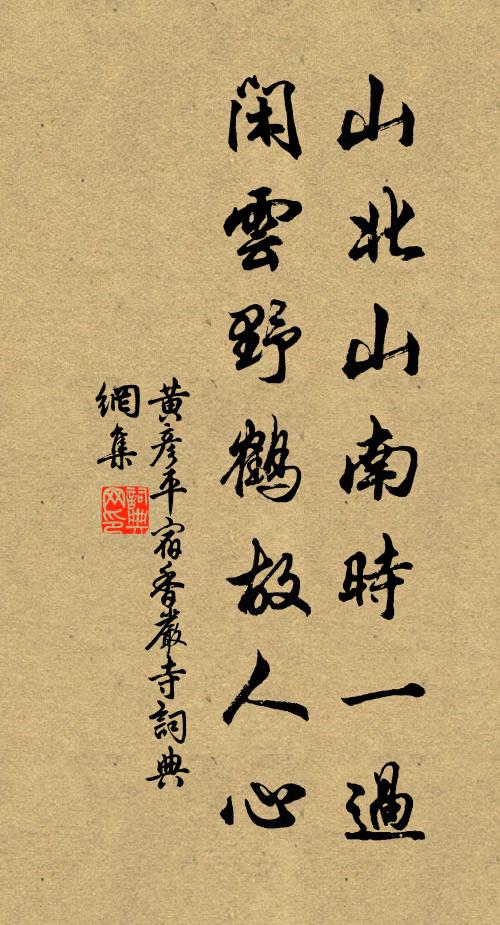 山北山南時一過
閑雲野鶴故人心
黃彥平宿香嚴寺詞典
網集
詞典
网印